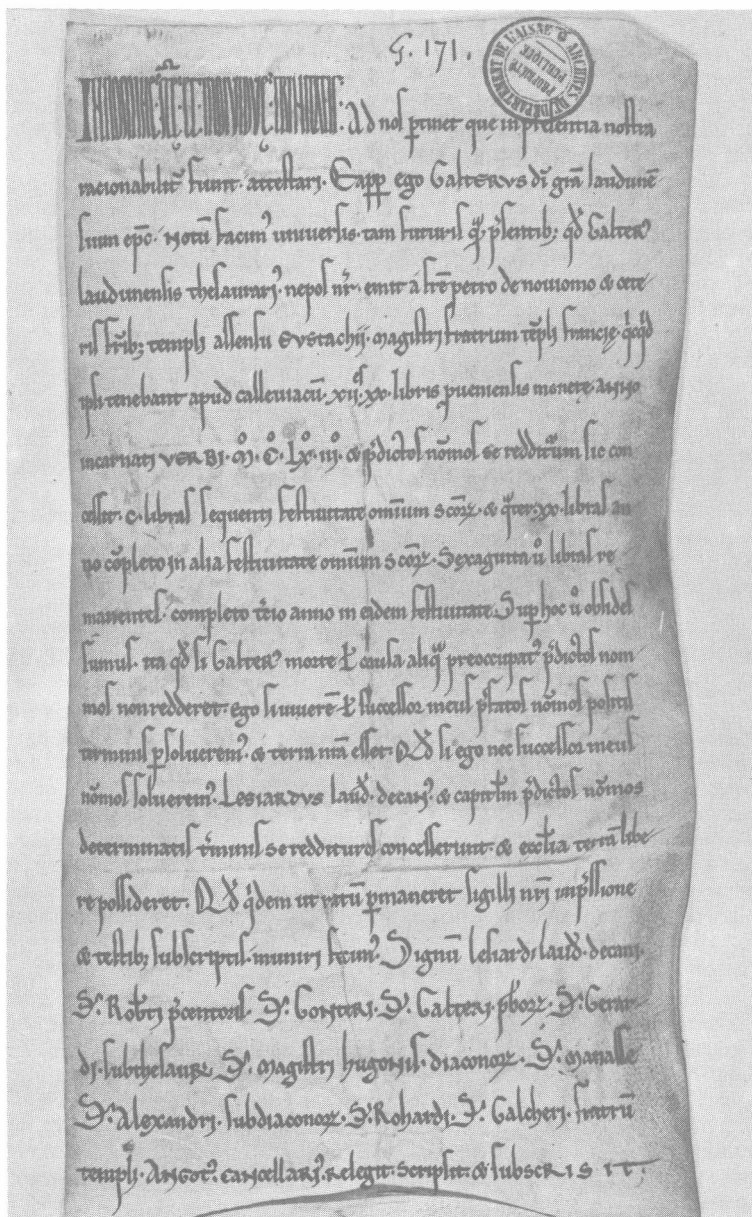 G. 171.
ARCHIVES DU DÉPARTEMENT DE L'AISNE
PROPRIÉTÉ PUBLIQUE
Ad nos ꝑtinet que in presentia nostra
racionabilit᷑ fiunt attestari. Eapp̱ ego GALTERVS dī grā laudunē
sium ep̄c. Notū facimꝰ universis tam futuris qͣ p̄sentib; qđ Galterꝰ
laudunensis thesaurariꝰ nepos nr̄. emit a fr̄e petro de noviomo & cete
ris fr̄ib; templi assensu Evstachij. magistri fratrum tēpli francię. qͥcqͥd
ipsi tenebant apud calleviacū. xijͤˢ. xx. libris pruveniensis monete. anno
incarnati VERBI. M̊. C̊. Lx̊. iij̊. & p̄dictos nūmos se redditurum sic con
cessit. c. libras sequenti festivitate omnium scōꝝ. & qͣter. xx. libras an
no cōpleto in alia festivitate omnium scōꝝ. Sexaginta ū libras re
manentes. completo t̄cio anno in eidem festivitate. Sup hoc ū obsides
sumus. ita qđ si Galterꝰ morte ł causa aliqͣ preoccupatꝰ p̄dictos nom
mos non redderet. ego si viverē ł successor meus p̄fatos nōmos positis
terminis ꝑsolveremꝰ. & terra nr̄a esset. Qđ si ego nec successor meus
nōmos solveremꝰ. LESIARDVS lauđ. decanꝰ. & capitłm p̄dictos nōmos
determinatis t̄minis se reddituros concesserunt. & ecclīa terrā libe
re possideret. Qđ qͥdem ut ratū ꝑmaneret sigilli nr̄i imp̄ssione
& testib; subscriptis. muniri fecimꝰ. Signū lesiardi. lauđ. decani.
S'. Robt̄i p̄centoris. S'. Gonteri. S'. Galteri. p̄b̄oꝝ. S'. Gerar
di. subthesaur̄. S'. magistri hugonis. diaconoꝝ. S'. Manasse
S'. Alexandri. subdiaconoꝝ. S'. Rohardi. S'. Galcheri. fratrū
templi. Angotꝰ. cancellariꝰ. relegit. scripsit. & subscrisit.